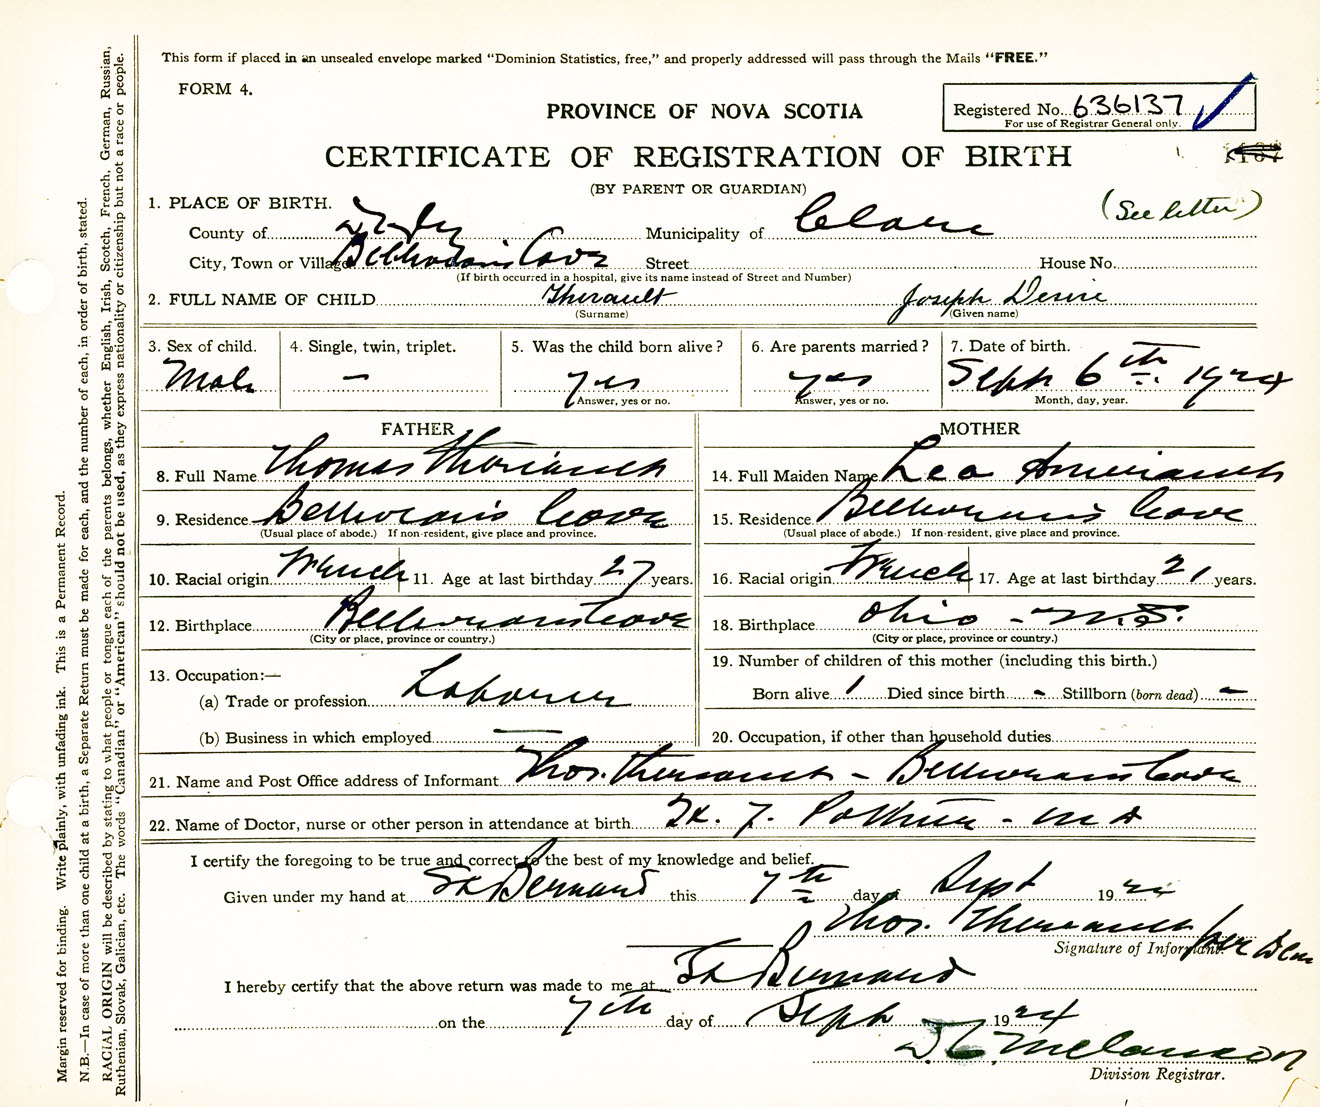 This form if placed in an unsealed envelope marked "Dominion Statistics, free," and properly addressed will pass through the Mails "FREE."
FORM 4.
PROVINCE OF NOVA SCOTIA
Registered No. 636137
For use of Registrar General only.
CERTIFICATE OF REGISTRATION OF BIRTH
(BY PARENT OR GUARDIAN)
(See letter)
1. PLACE OF BIRTH.
County of Digby Municipality of Clare
City, Town or Village Belliveau's Cove Street House No.
(If birth occurred in a hospital, give its name instead of Street and Number)
2. FULL NAME OF CHILD Theriault Joseph Desire
(Surname) (Given name)
3. Sex of child. 4. Single, twin, triplet. 5. Was the child born alive? 6. Are parents married? 7. Date of birth.
Male – yes yes Sept 6th 1924
Answer, yes or no. Answer, yes or no. Month, day, year.
FATHER
8. Full Name Thomas Theriault
9. Residence Belliveau's Cove
(Usual place of abode.) If non-resident, give place and province.
10. Racial origin French 11. Age at last birthday 27 years.
12. Birthplace Belliveau's Cove
(City or place, province or country.)
13. Occupation:—
(a) Trade or profession Labourer
(b) Business in which employed —
MOTHER
14. Full Maiden Name Lea
15. Residence Belliveau's Cove
(Usual place of abode.) If non-resident, give place and province.
16. Racial origin French 17. Age at last birthday 21 years.
18. Birthplace Ohio - N.S.
(City or place, province or country.)
19. Number of children of this mother (including this birth.)
Born alive 1 Died since birth - Stillborn (born dead) -
20. Occupation, if other than household duties
21. Name and Post Office address of Informant Thos. Theriault - Belliveau's Cove
22. Name of Doctor, nurse or other person in attendance at birth Pothier - MD
I certify the foregoing to be true and correct to the best of my knowledge and belief.
Given under my hand at St Bernard this 7th day of Sept 1924
Thos. Theriault per
Signature of Informant.
I hereby certify that the above return was made to me at St Bernard
on the 7th day of Sept 1924
Melanson
Division Registrar.
Margin reserved for binding. Write plainly, with unfading ink. This is a Permanent Record.
N.B.—In case of more than one child at a birth, a Separate Return must be made for each, and the number of each, in order of birth, stated.
RACIAL ORIGIN will be described by stating to what people or tongue each of the parents belongs, whether English, Irish, Scotch, French, German, Russian,
Ruthenian, Slovak, Galician, etc. The words "Canadian" or "American" should not be used, as they express nationality or citizenship but not a race or people.